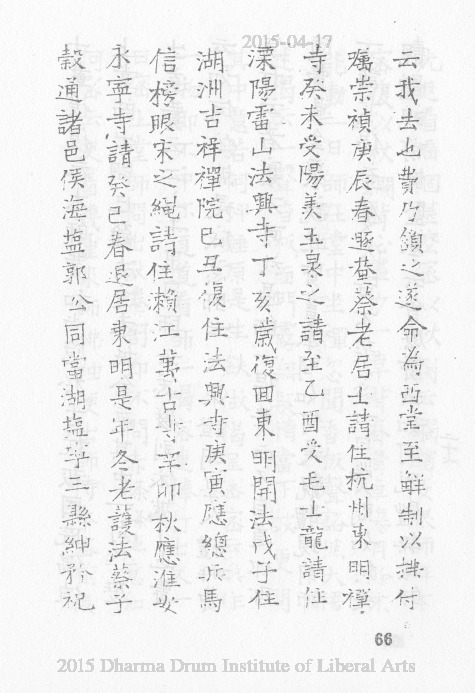 2015-04-17
云我去也費乃鎖之遂命為西堂至解制以拂付
囑崇禎庚辰春遯菴蔡老居士請住杭州東明禪
寺癸未受陽羡玉泉之請至乙酉受毛士龍請住
溧陽雷山法興寺丁亥歲復回東明開法戊子住
湖洲吉祥禪院己丑復住法興寺庚寅應總兵馬
信榜眼宋之繩請住賴江萬古寺辛卯秋應淮安
永寧寺請癸巳春退居東明是年冬老護法蔡子
穀通諸邑侯海塩郭公同當湖塩寧三縣紳衿祝
66
2015 Dharma Drum Institute of Liberal Arts